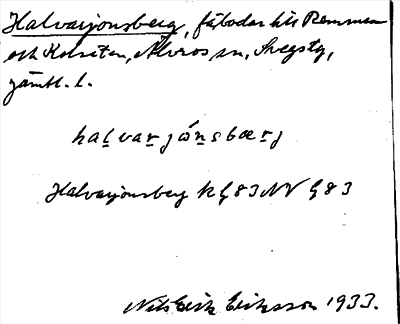 Halvarjonsberg, fäbodar till Remmen
och Kolsäten, Älvros sn, Svegs tg,
Jämtl. l.
halvarjónsbærj
Halvarjonsberg k G83NV G 83
Nils Erik Eriksson 1933.